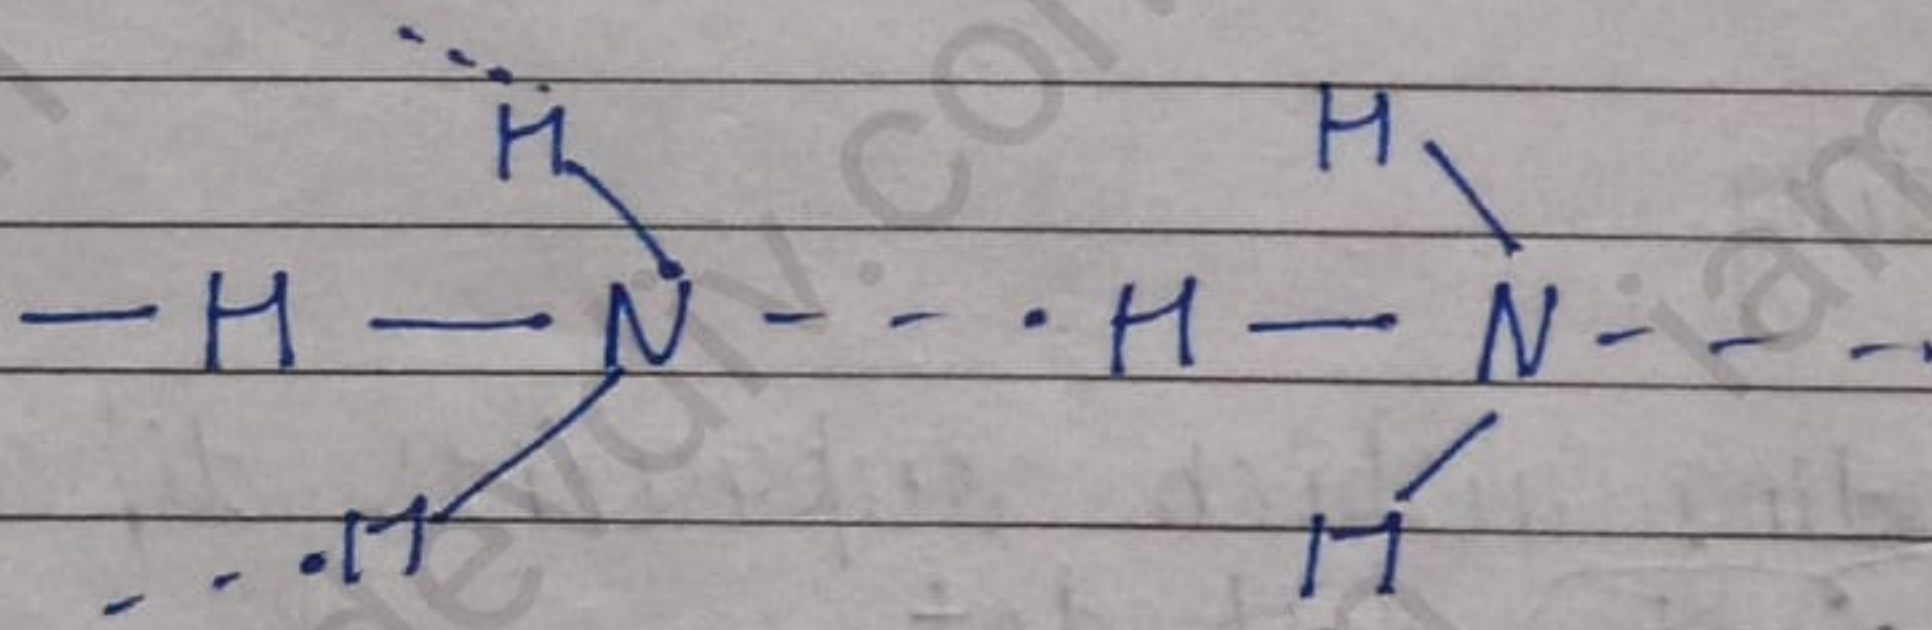 H H
— H — N - - · H — N - - -
H H